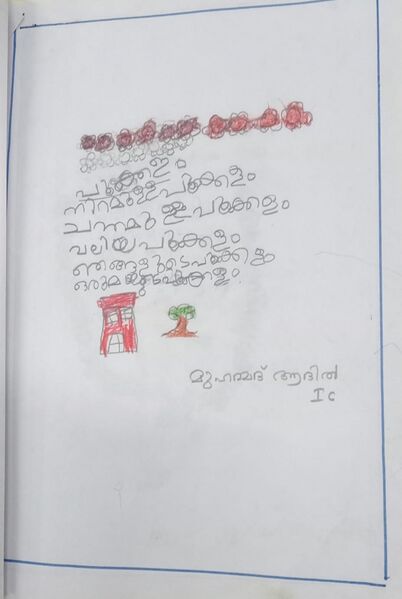 പൂക്കളം
നിറമുള്ള പൂക്കളം
ചന്തമുള്ള പൂക്കളം
വലിയ പൂക്കളം
ഞങ്ങളുടെ പൂക്കളം
ഒരുമയുടെ പൂക്കളം.
മുഹമ്മദ് ആദിൽ
I C